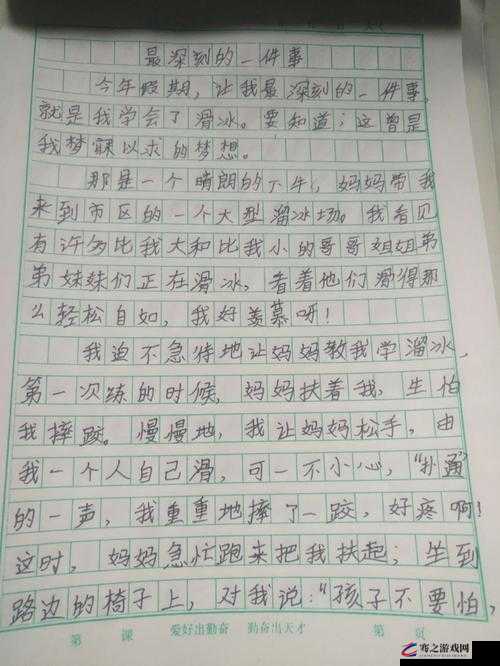 最深刻的一件事
今年假期，让我最深刻的一件事，
就是我学会了滑冰。要知道；这曾是
我梦寐以求的梦想。
那是一个晴朗的下午，妈妈带我
来到市区的一个大型溜冰场。我看见
有许多比我大和比我小的哥哥姐姐弟
弟妹妹们正在滑冰，看着他们滑得那
么轻松自如，我好羡慕呀！
我迫不急待地让妈妈教我学溜冰，
第一次练的时候，妈妈扶着我，生怕
我摔跤。慢慢地，我让妈妈松手，由
我一个人自己滑，可一不小心，“扑通”
的一声，我重重地摔了一跤，好疼啊！
这时，妈妈急忙跑来把我扶起；坐到
路边的椅子上，对我说：“孩子不要怕，
第 课 爱好出勤奋 勤奋出天才 第 页
骞之游戏网